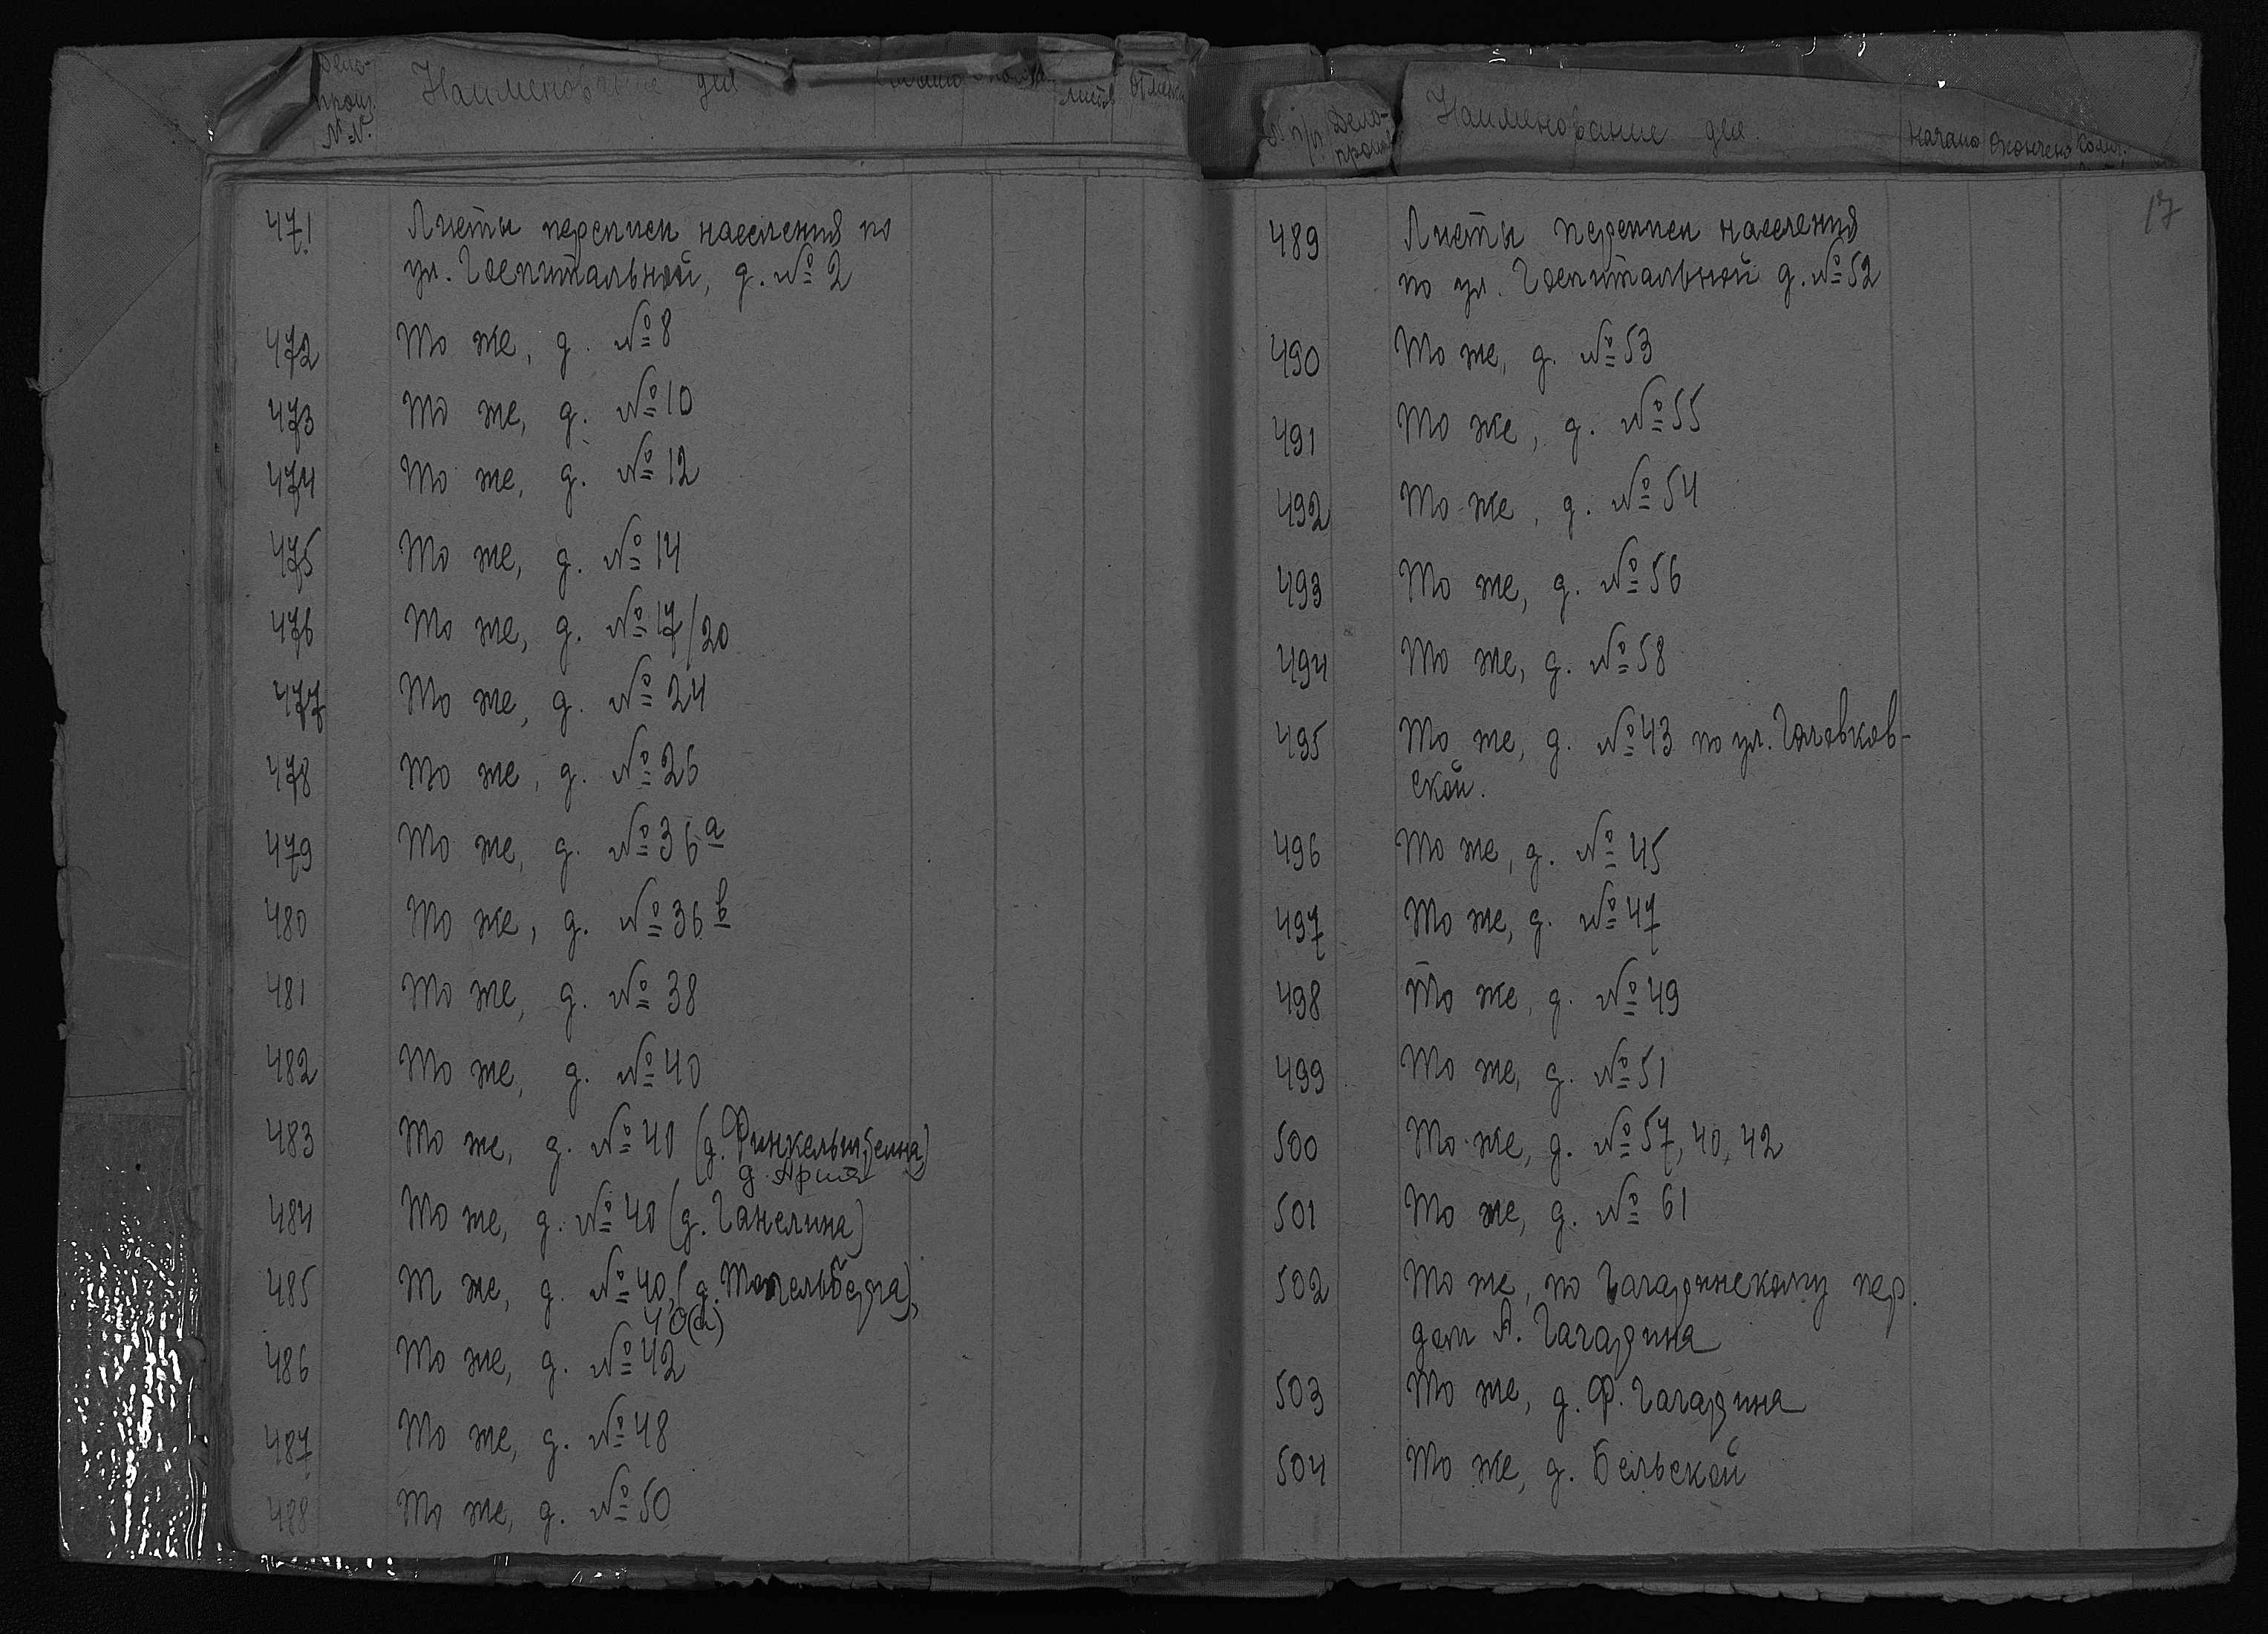 Дело-
произ.
№№
Наименование дел
листов
471 Листы переписи населения по
ул. Госпитальной, д. № 2
472 То же, д. № 8
473 То же, д. № 10
474 То же, д. № 12
475 То же, д. № 14
476 То же, д. № 17/20
477 То же, д. № 24
478 То же, д. № 26
479 То же, д. № 36а
480 То же, д. № 36в
481 То же, д. № 38
482 То же, д. № 40
483 То же, д. № 40 (д. Финкельштейна)
д. Арша
484 То же, д. № 40 (д. Ганелина)
485 Т же, д. № 40, (д. Топельберга),
40(а)
486 То же, д. № 42
487 То же, д. № 48
488 То же, д. № 50
17
№ п/п Дело-
произ.
Наименование дел.
Начало Окончено Колич.
489 Листы переписи населения
по ул. Госпитальной д. № 52
490 То же, д. № 53
491 То же, д. № 55
492 То же, д. № 54
493 То же, д. № 56
494 То же, д. № 58
495 То же, д. № 43 по ул. Головков-
ской.
496 То же, д. № 45
497 То же, д. № 47
498 То же, д. № 49
499 То же, д. № 51
500 То же, д. № 57, 40, 42
501 То же, д. № 61
502 То же, по Гагаринскому пер.
дом А. Гагарина
503 То же, д. Ф. Гагарина
504 То же, д. Бельской